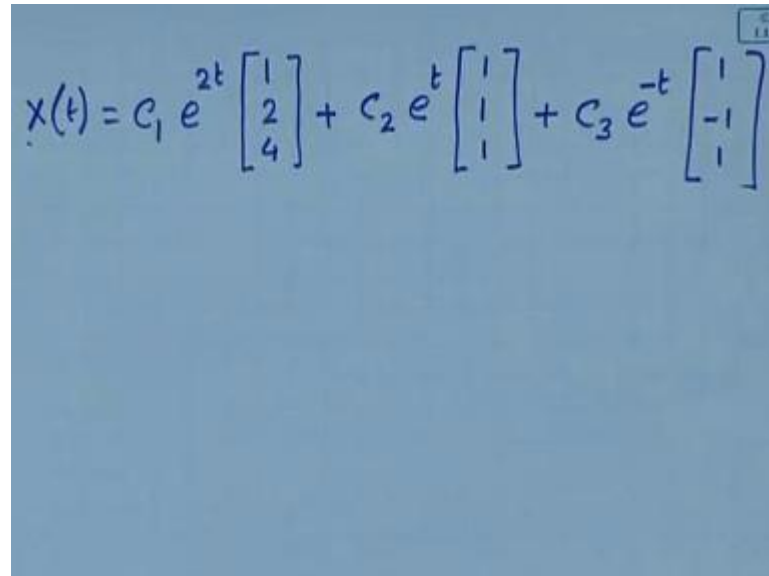 X(t) = C₁ e^{2t} [1 2 4] + C₂ e^{t} [1 1 1] + C₃ e^{-t} [1 -1 1]